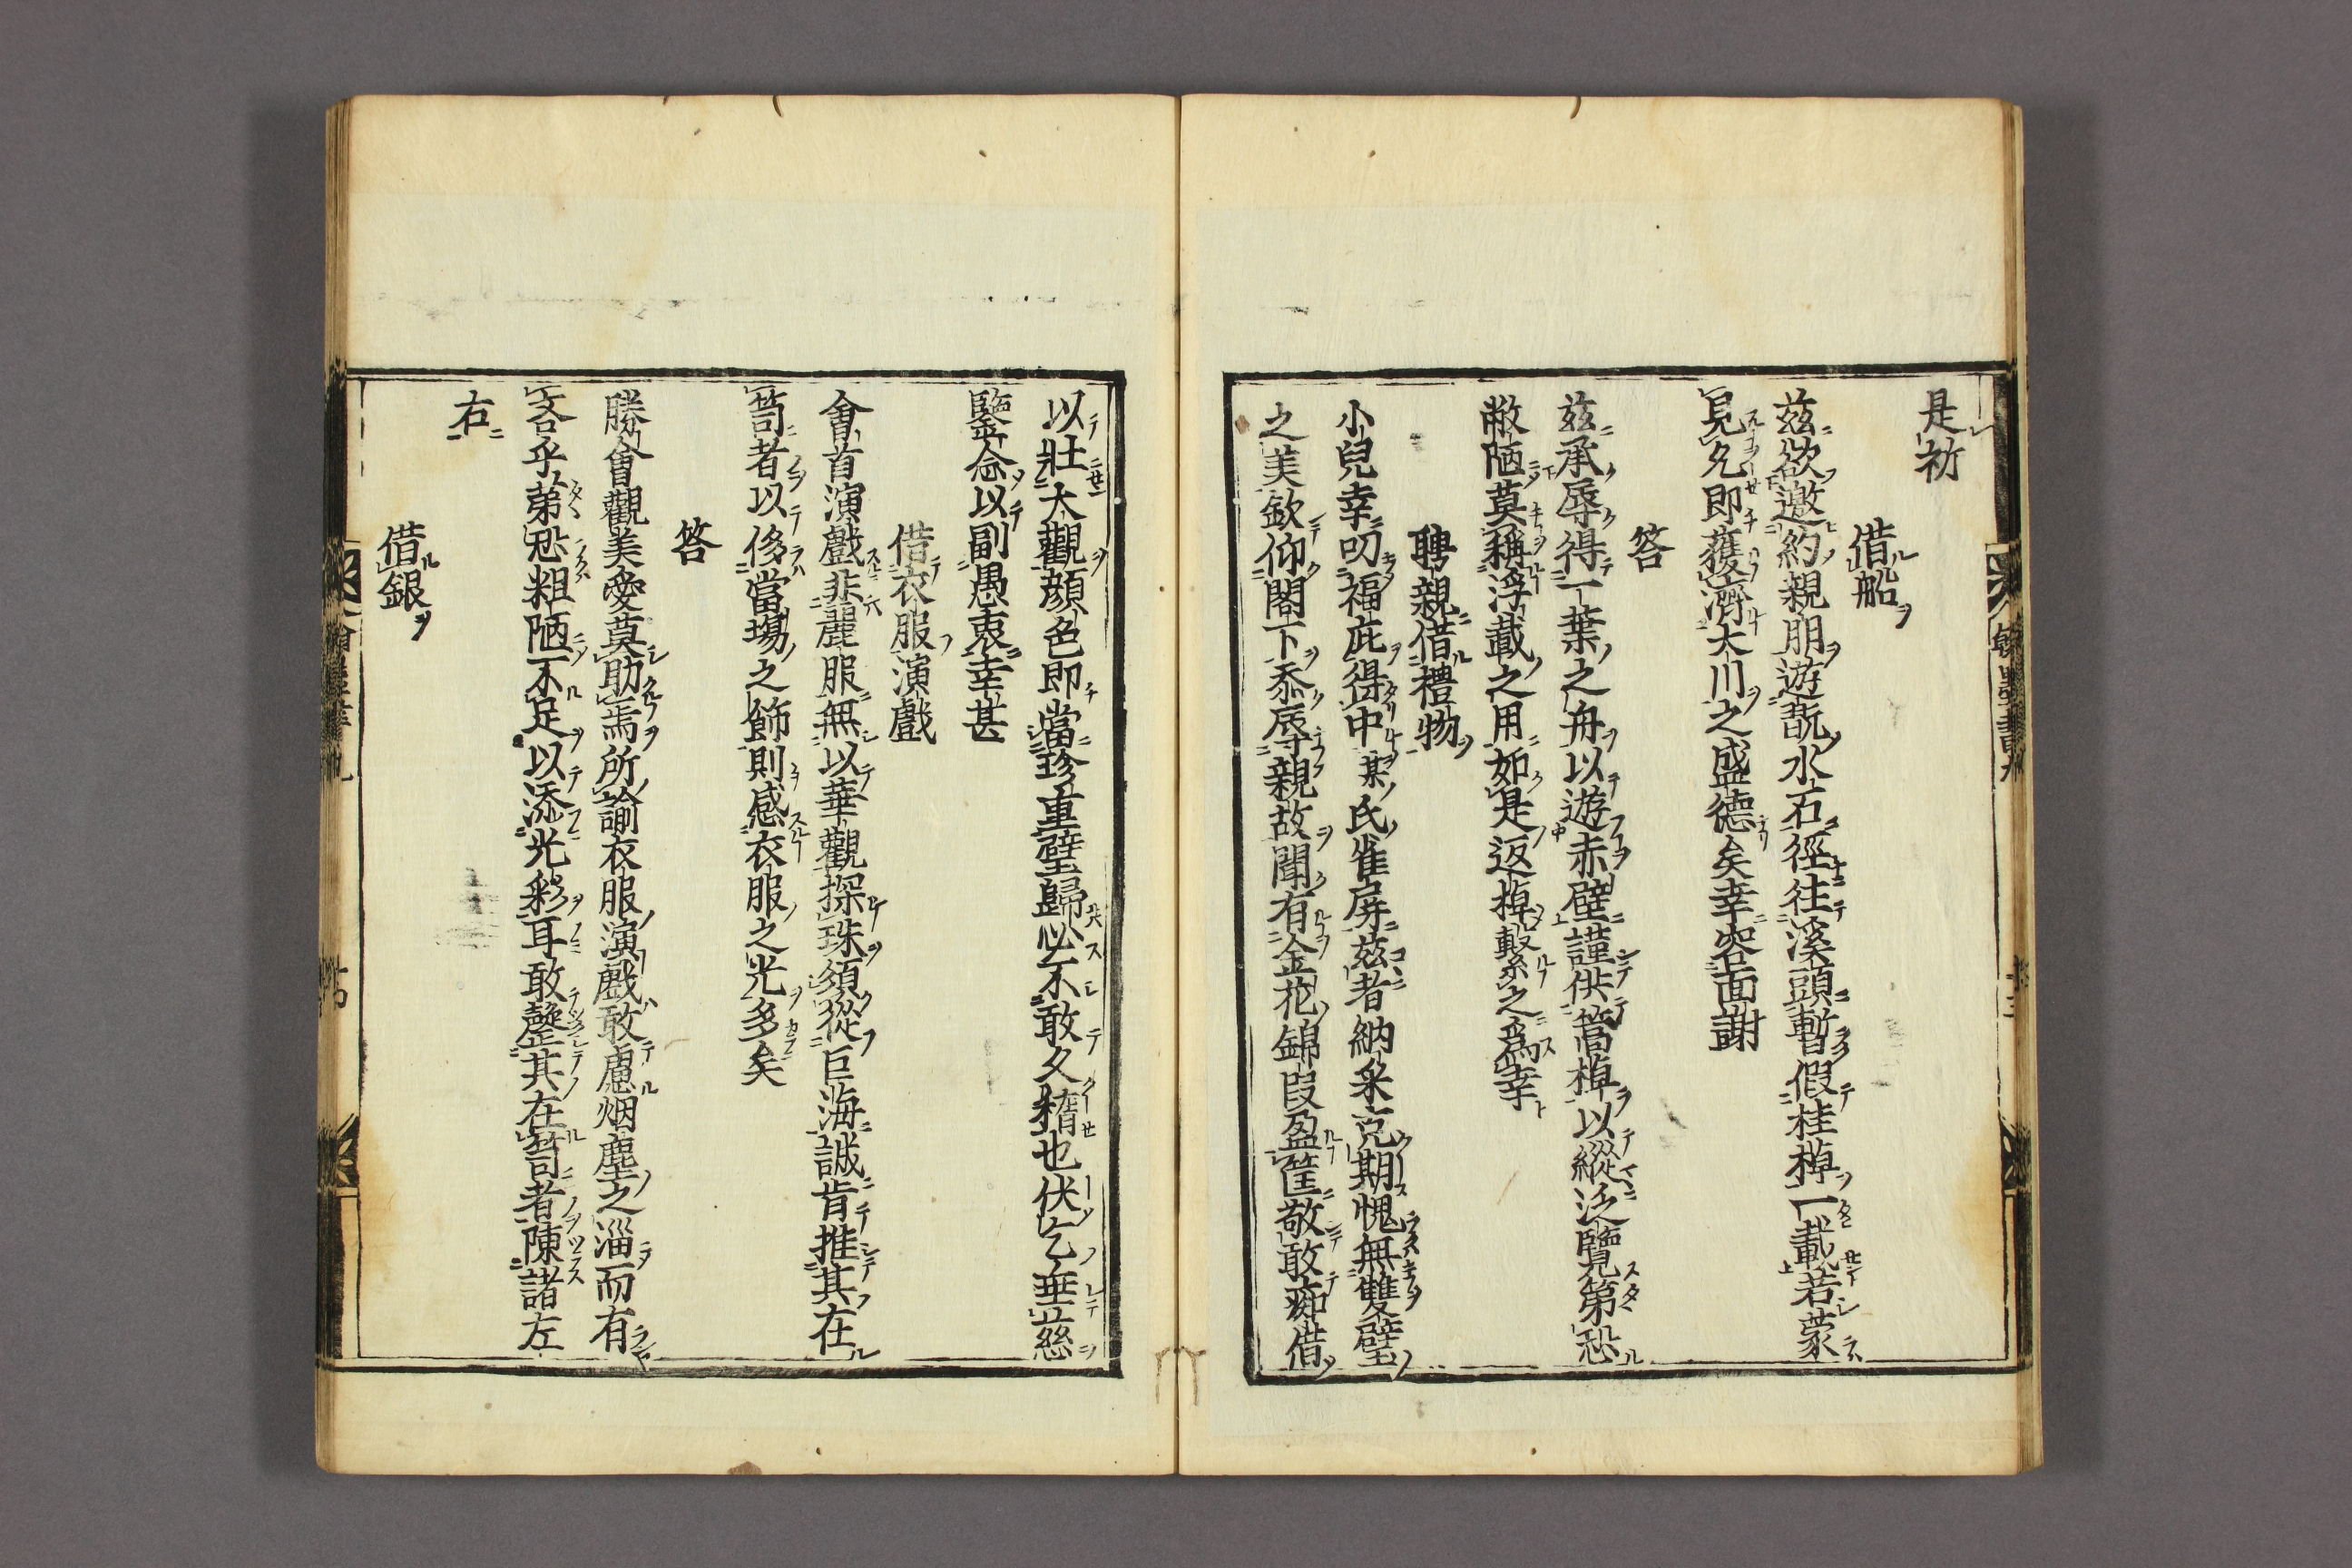 是祈
借船
茲欲邀約親朋遊翫水石徑往溪頭暫假桂棹一載若蒙
見允即獲濟大川之盛德矣幸容面謝
答
茲承辱得一葉之舟以遊赤壁謹供篙棹以縱泛覽第恐
敝陋莫稱浮載之用如是返棹繫之為幸
聘親借禮物
小兒幸叨福庇得中某氏雀屏茲者納采克期愧無雙璧
之美欽仰閣下忝辱親故聞有金花錦段盈筐敬敢痴借
以壯大觀顔色即當珍重璧歸必不敢久稽也伏乞垂慈
鑒念以副愚衷幸甚
借衣服演戲
會首演戲非麗服無以華觀探珠須從巨海誠肯推其在
笥者以侈當場之飾則感衣服之光多矣
答
勝會觀美愛莫助焉所諭衣服演戲敢慮烟塵之淄而有
吝乎第恐粗陋不足以添光彩耳敢罄其在笥者陳諸左
右
借銀